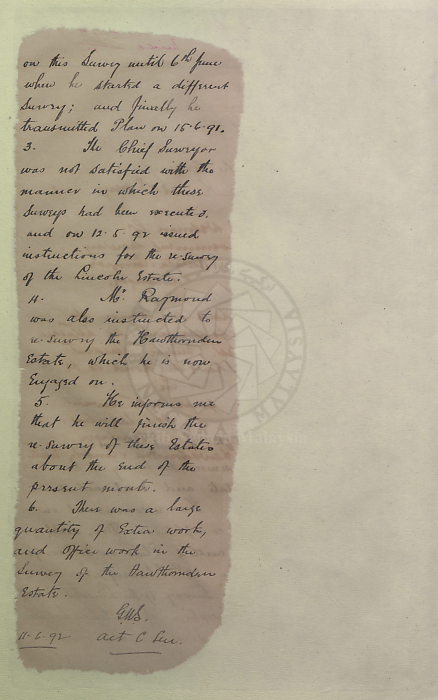 on this Survey until 6th June
when he started a different
Survey; and finally he
transmitted Plan on 15-6-91.
3. The Chief Surveyor
was not satisfied with the
manner in which these
Surveys had been executed.
and on 12.5.92 issued
instructions for the re-survey
of the Lincoln Estate.
4. Mr Raymond
was also instructed to
re-survey the Hawthornden
Estate, which he is now
Engaged on.
5. He informs me
that he will finish the
re-survey of these Estates
about the end of the
present month.
6. There was a large
quantity of Extra work,
and office work in the
Survey of the Hawthornden
Estate.
-6-92 Act C Sur.